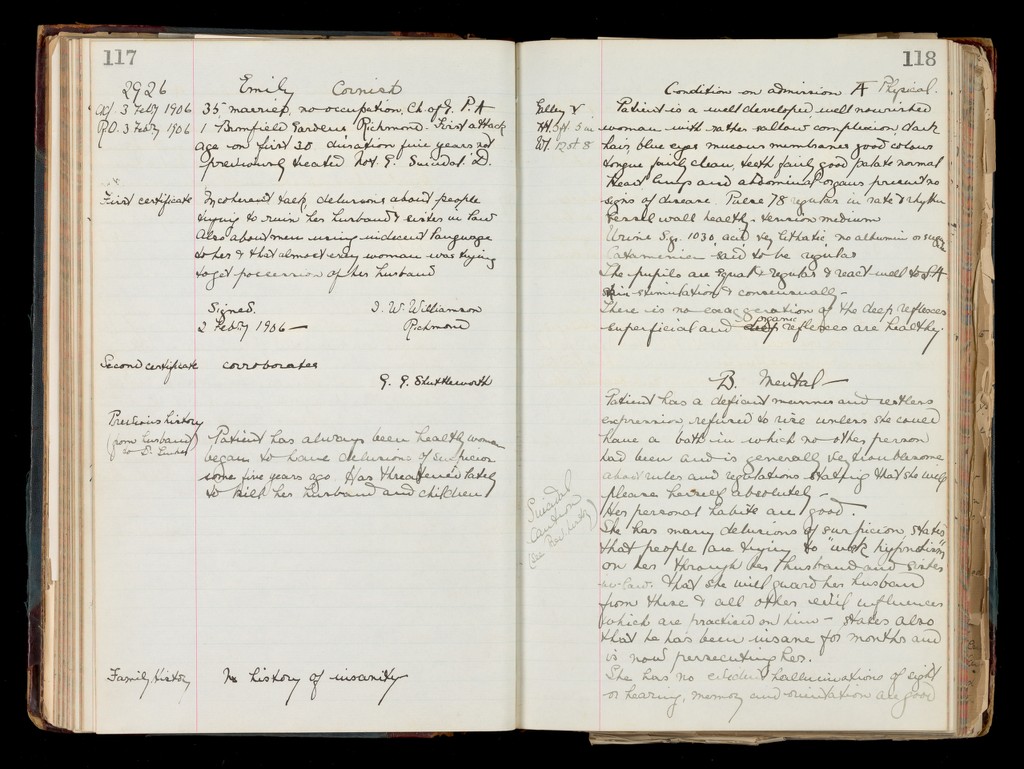 117
2926
Emily Cornist
3 Feby 1906 35 married, no occupation, Ch. of E. P.A
R.O. 3 Feby 1906 1 Bromfield Gardens Richmond - First attack
age on first 30 duration five years not
previously treated Not E. Suicidal. D.
First certificate Incoherent talk, delusions about people
trying to ruin her husband & sister in law
Also about men using indecent language
to her & that almost every woman was trying
to get possession of her husband
Signed. J. W. Williamson
2 Feby 1906 — Richmond
Second certificate corroborates
G. E. Shuttleworth
Previous history
(from husband)
Patient has always been healthy woman
began to have delusions of suspicion
some five years ago. Has threatened lately
to kill her husband and children
Family History No history of insanity
118
Condition on admission A Physical.
Patient is a well developed, well nourished
Ht. 5 ft. 5 in woman with rather sallow complexion, dark
Wt. 12 st 8 hair, blue eyes mucous membranes good colour
tongue fairly clean, teeth fairly good palate normal
Heart lungs and abdominal organs present no
signs of disease. Pulse 78 regular in rate & rhythm
Vessel wall healthy - tension medium
Urine Sg. 1030, acid, no albumin or sugar
Catamenia said to be regular
The pupils are equal & regular & react well to
skin stimulation & consensually -
There is no exaggeration of the deep reflexes
superficial and deep organic reflexes are healthy.
B. Mental —
Patient has a defiant manner and restless
expression, refused to rise unless she could
have a bath in which no other person
had been and is generally very troublesome
about rules and regulations stating that she will
please herself absolutely -
Her personal habits are good.
Suicidal
caution
She has many delusions of suspicion, states
that people are trying to "work hypnotism"
on her through her husband and sister
in-law. that she will guard her husband
from these & all other evil influences
which are practised on him - states also
that he has been insane for months and
is now persecuting her.
She has no evident hallucinations of sight
or hearing, memory and orientation are good